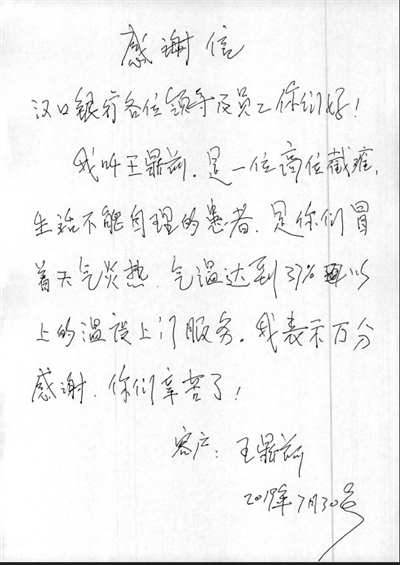 感谢信
汉口银行各位领导及员工你们好！
我叫王鼎前.是一位高位截瘫，
生活不能自理的患者.是你们冒
着天气炎热.气温达到37%以
上的温度上门服务。我表示万分
感谢.你们辛苦了！
客户：王鼎前
7月30号